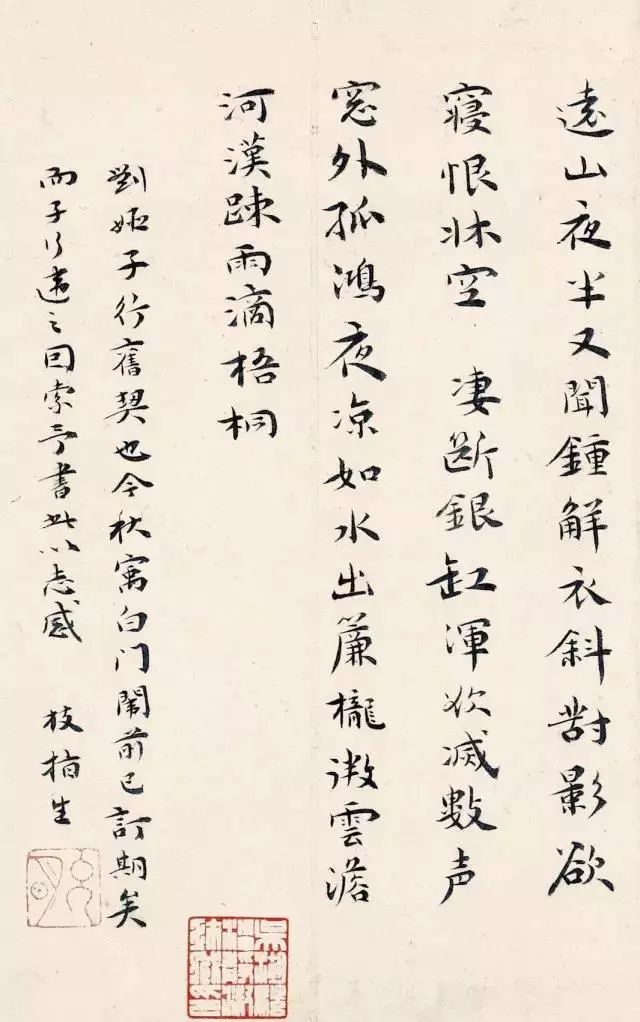 遠山夜半又聞鍾解衣斜對影欲
寢恨牀空　凄斷銀缸渾欲滅數声
窓外孤鴻夜凉如水出簾櫳微雲澹
河漢踈雨滴梧桐
劉姬子行舊契也今秋寓白门闈前已訂期矣
而子行違之回索予書此以志感　枝指生